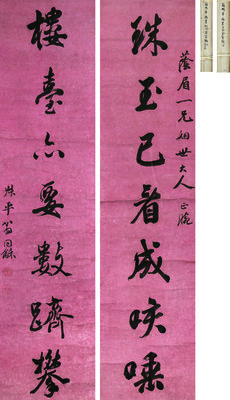 蔭眉一兄姻世大人正腕
珠玉已看成咲唾
樓臺亦要數躋攀
叔平翁同龢